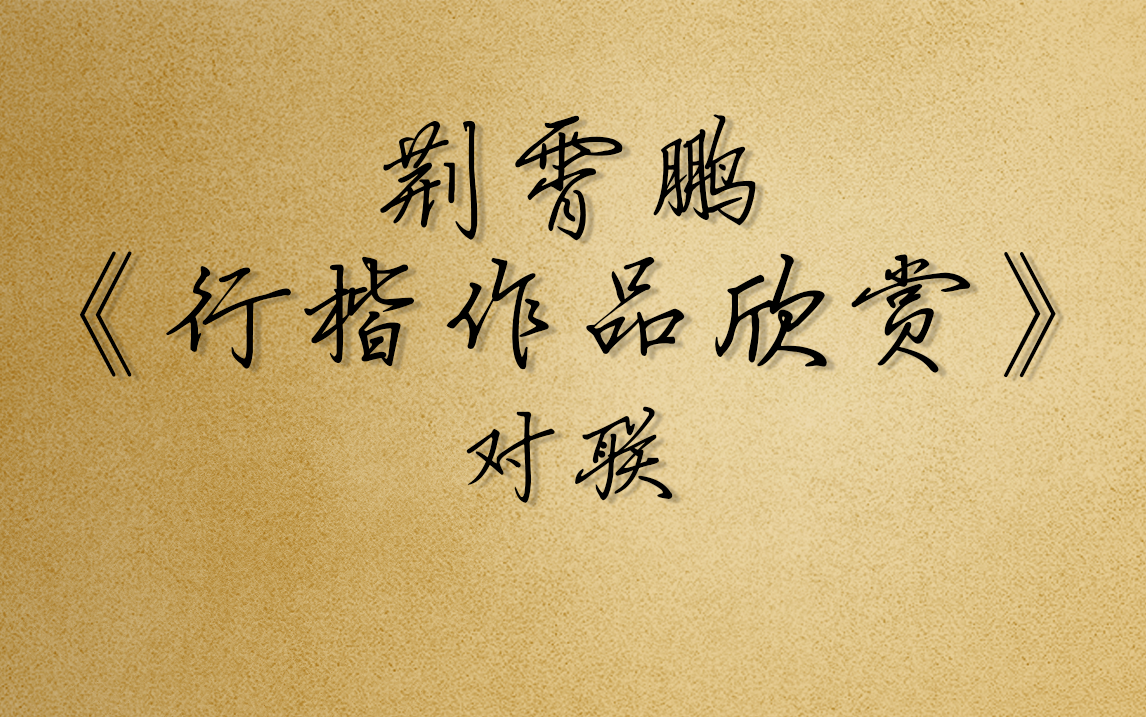 荆霄鹏
《行楷作品欣赏》
对联